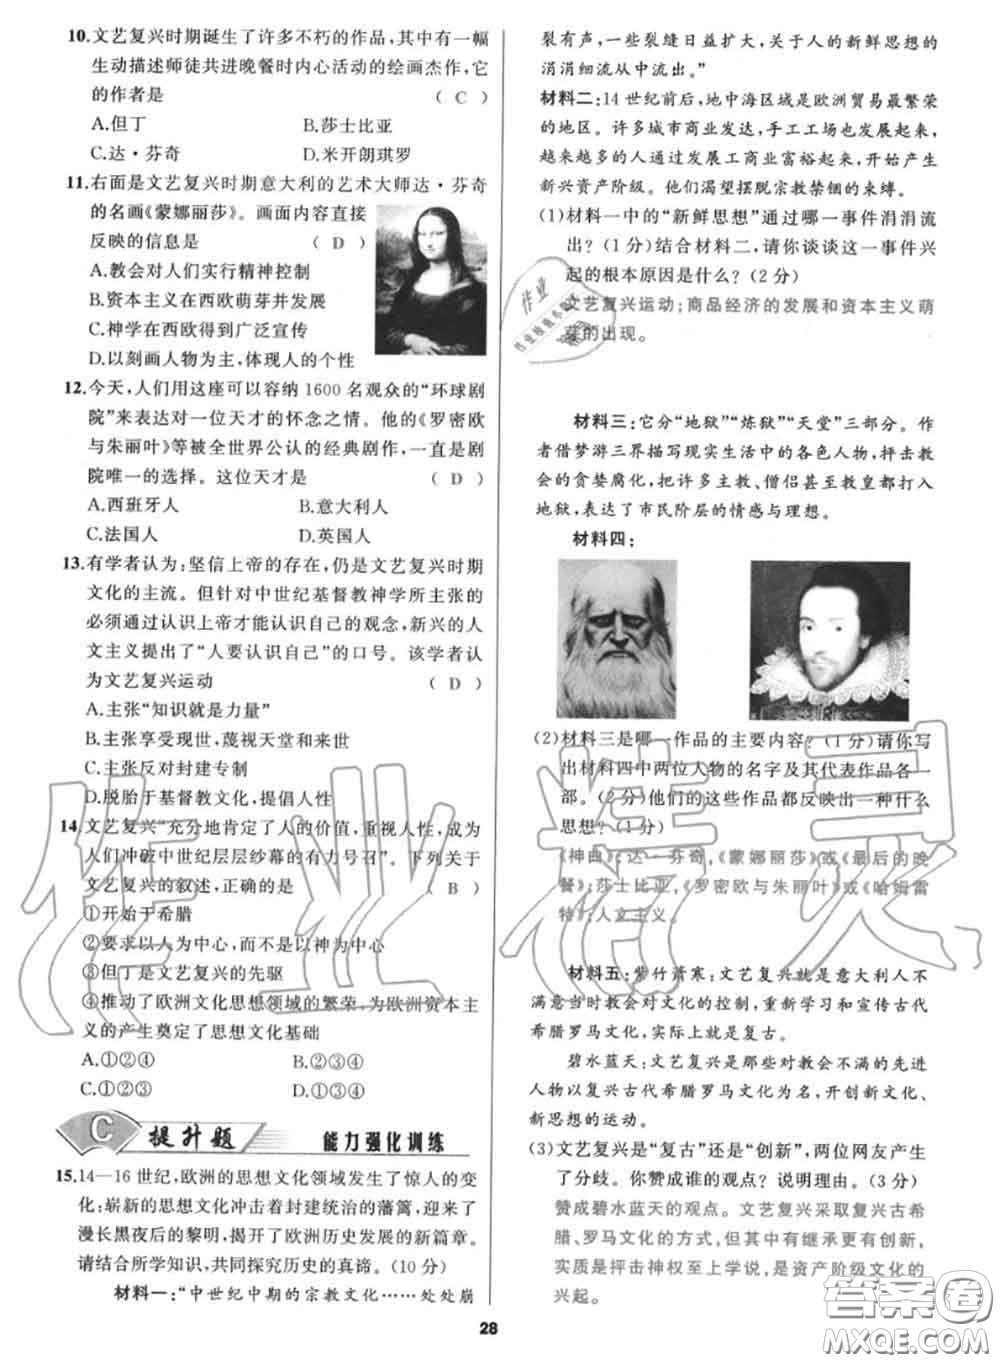 10.文艺复兴时期诞生了许多不朽的作品，其中有一幅
生动描述师徒共进晚餐时内心活动的绘画杰作，它
的作者是 （ C ）
A.但丁 B.莎士比亚
C.达·芬奇 D.米开朗琪罗
11.右面是文艺复兴时期意大利的艺术大师达·芬奇
的名画《蒙娜丽莎》。画面内容直接
反映的信息是 （ D ）
A.教会对人们实行精神控制
B.资本主义在西欧萌芽并发展
C.神学在西欧得到广泛宣传
D.以刻画人物为主，体现人的个性
12.今天，人们用这座可以容纳 1600 名观众的“环球剧
院”来表达对一位天才的怀念之情。他的《罗密欧
与朱丽叶》等被全世界公认的经典剧作，一直是剧
院唯一的选择。这位天才是 （ D ）
A.西班牙人 B.意大利人
C.法国人 D.英国人
13.有学者认为：坚信上帝的存在，仍是文艺复兴时期
文化的主流。但针对中世纪基督教神学所主张的
必须通过认识上帝才能认识自己的观念，新兴的人
文主义提出了“人要认识自己”的口号。该学者认
为文艺复兴运动 （ D ）
A.主张“知识就是力量”
B.主张享受现世，蔑视天堂和来世
C.主张反对封建专制
D.脱胎于基督教文化，提倡人性
14.文艺复兴“充分地肯定了人的价值，重视人性，成为
人们冲破中世纪层层纱幕的有力号召”。下列关于
文艺复兴的叙述，正确的是 （ B ）
①开始于希腊
②要求以人为中心，而不是以神为中心
③但丁是文艺复兴的先驱
④推动了欧洲文化思想领域的繁荣，为欧洲资本主
义的产生奠定了思想文化基础
A.①②④ B.②③④
C.①②③ D.①③④
C 提升题 能力强化训练
15.14—16 世纪，欧洲的思想文化领域发生了惊人的变
化；崭新的思想文化冲击着封建统治的藩篱，迎来了
漫长黑夜后的黎明，揭开了欧洲历史发展的新篇章。
请结合所学知识，共同探究历史的真谛。（10 分）
材料一：“中世纪中期的宗教文化……处处崩
裂有声，一些裂缝日益扩大，关于人的新鲜思想的
涓涓细流从中流出。”
材料二：14 世纪前后，地中海区域是欧洲贸易最繁荣
的地区。许多城市商业发达，手工工场也发展起来，
越来越多的人通过发展工商业富裕起来，开始产生
新兴资产阶级。他们渴望摆脱宗教禁锢的束缚。
(1)材料一中的“新鲜思想”通过哪一事件涓涓流
出？（1 分）结合材料二，请你谈谈这一事件兴
起的根本原因是什么？（2 分）
文艺复兴运动；商品经济的发展和资本主义萌
芽的出现。
材料三：它分“地狱”“炼狱”“天堂”三部分。作
者借梦游三界描写现实生活中的各色人物，抨击教
会的贪婪腐化，把许多主教、僧侣甚至教皇都打入
地狱，表达了市民阶层的情感与理想。
材料四：
(2)材料三是哪一作品的主要内容？（1 分）请你写
出材料四中两位人物的名字及其代表作品各一
部。（2 分）他们的这些作品都反映出一种什么
思想？（1 分）
《神曲》；达·芬奇，《蒙娜丽莎》或《最后的晚
餐》；莎士比亚，《罗密欧与朱丽叶》或《哈姆雷
特》；人文主义。
材料五：紫竹萧寒：文艺复兴就是意大利人不
满意当时教会对文化的控制，重新学习和宣传古代
希腊罗马文化，实际上就是复古。
碧水蓝天：文艺复兴是那些对教会不满的先进
人物以复兴古代希腊罗马文化为名，开创新文化、
新思想的运动。
(3)文艺复兴是“复古”还是“创新”，两位网友产生
了分歧。你赞成谁的观点？说明理由。（3 分）
赞成碧水蓝天的观点。文艺复兴采取复兴古希
腊、罗马文化的方式，但其中有继承更有创新，
实质是抨击神权至上学说，是资产阶级文化的
兴起。
28
作业精灵
答案圈
MXQE.COM